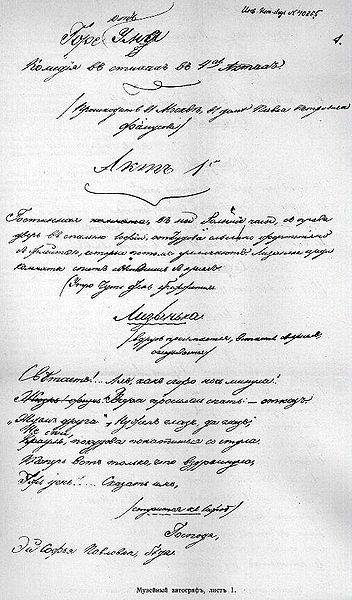 № 40255
1.
Горе отъ Ума
Комедія въ стихахъ въ 4хъ Актахъ
(Происходитъ въ Москвѣ, въ домѣ Павла Петровича
Фамусова)
Актъ 1й
Гостинная комната, въ ней большіе часы, съ права
дверь въ спальню Софіи, откудова слышно фортопіяно
съ флейтою, которыя потомъ умолкаютъ. Лизанька среди
комнаты спитъ, свѣсившись съ креселъ.
(Утро чуть день брежжится)
Лизанька
(вдругъ просыпается, встаетъ съ креселъ,
оглядывается)
Свѣтаетъ!... Ахъ, какъ скоро ночь минула!
Вчера просилась спать:– отказъ
„Ждемъ друга“. Нуженъ глазъ, да глазъ;
Не спи, покудова не скатишься со стула.
Теперь вотъ только, что вздремнула,
Ужъ день!.... Сказать имъ,
(стучится къ Софіи)
Господа,
Эй Софья Павловна, бѣда.
Музейный автографъ, листъ 1.